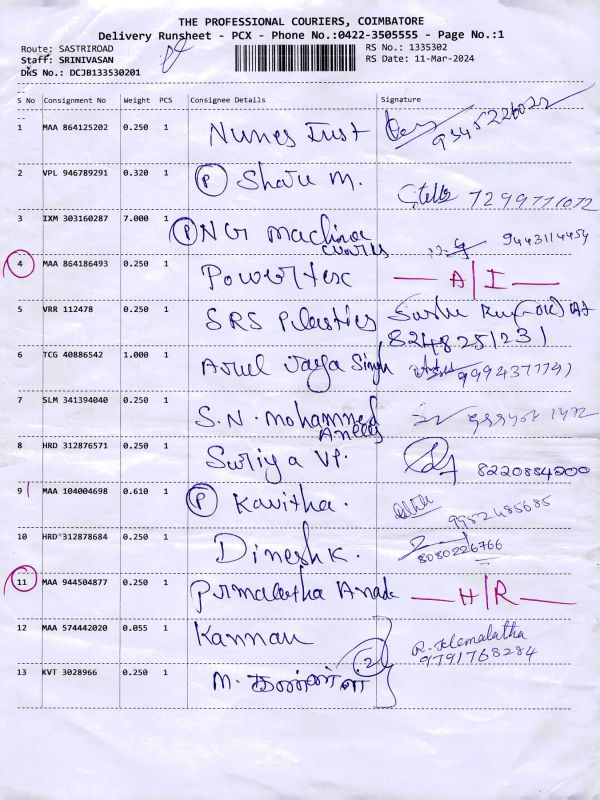 THE PROFESSIONAL COURIERS, COIMBATORE
Delivery Runsheet - PCX - Phone No.:0422-3505555 - Page No.:1
Route: SASTRIROAD RS No.: 1335302
Staff: SRINIVASAN RS Date: 11-Mar-2024
DRS No.: DCJB133530201
S No Consignment No Weight PCS Consignee Details Signature
1 MAA 864125202 0.250 1 Nunes Iust
2 VPL 946789291 0.320 1 (P) Sharu M. 7299771072
3 IXM 303160287 7.000 1 (P) NGR machine works 9443114454
4 MAA 864186493 0.250 1 Powertex — A | I —
5 VRR 112478 0.250 1 SRS Plastics
8248251231
6 TCG 40886542 1.000 1 Arul Jaya Singh
7 SLM 341394040 0.250 1 S.N. mohammed
Anees
8 HRD 312876571 0.250 1 Suriya VP. 8220884000
9 MAA 104004698 0.610 1 (P) Kavitha. 9952485685
10 HRD 312878684 0.250 1 Dinesh K. 8080226766
11 MAA 944504877 0.250 1 — H | R —
12 MAA 574442020 0.055 1 Kannan R. Hemalatha
(2) 9791768284
13 KVT 3028966 0.250 1 M.